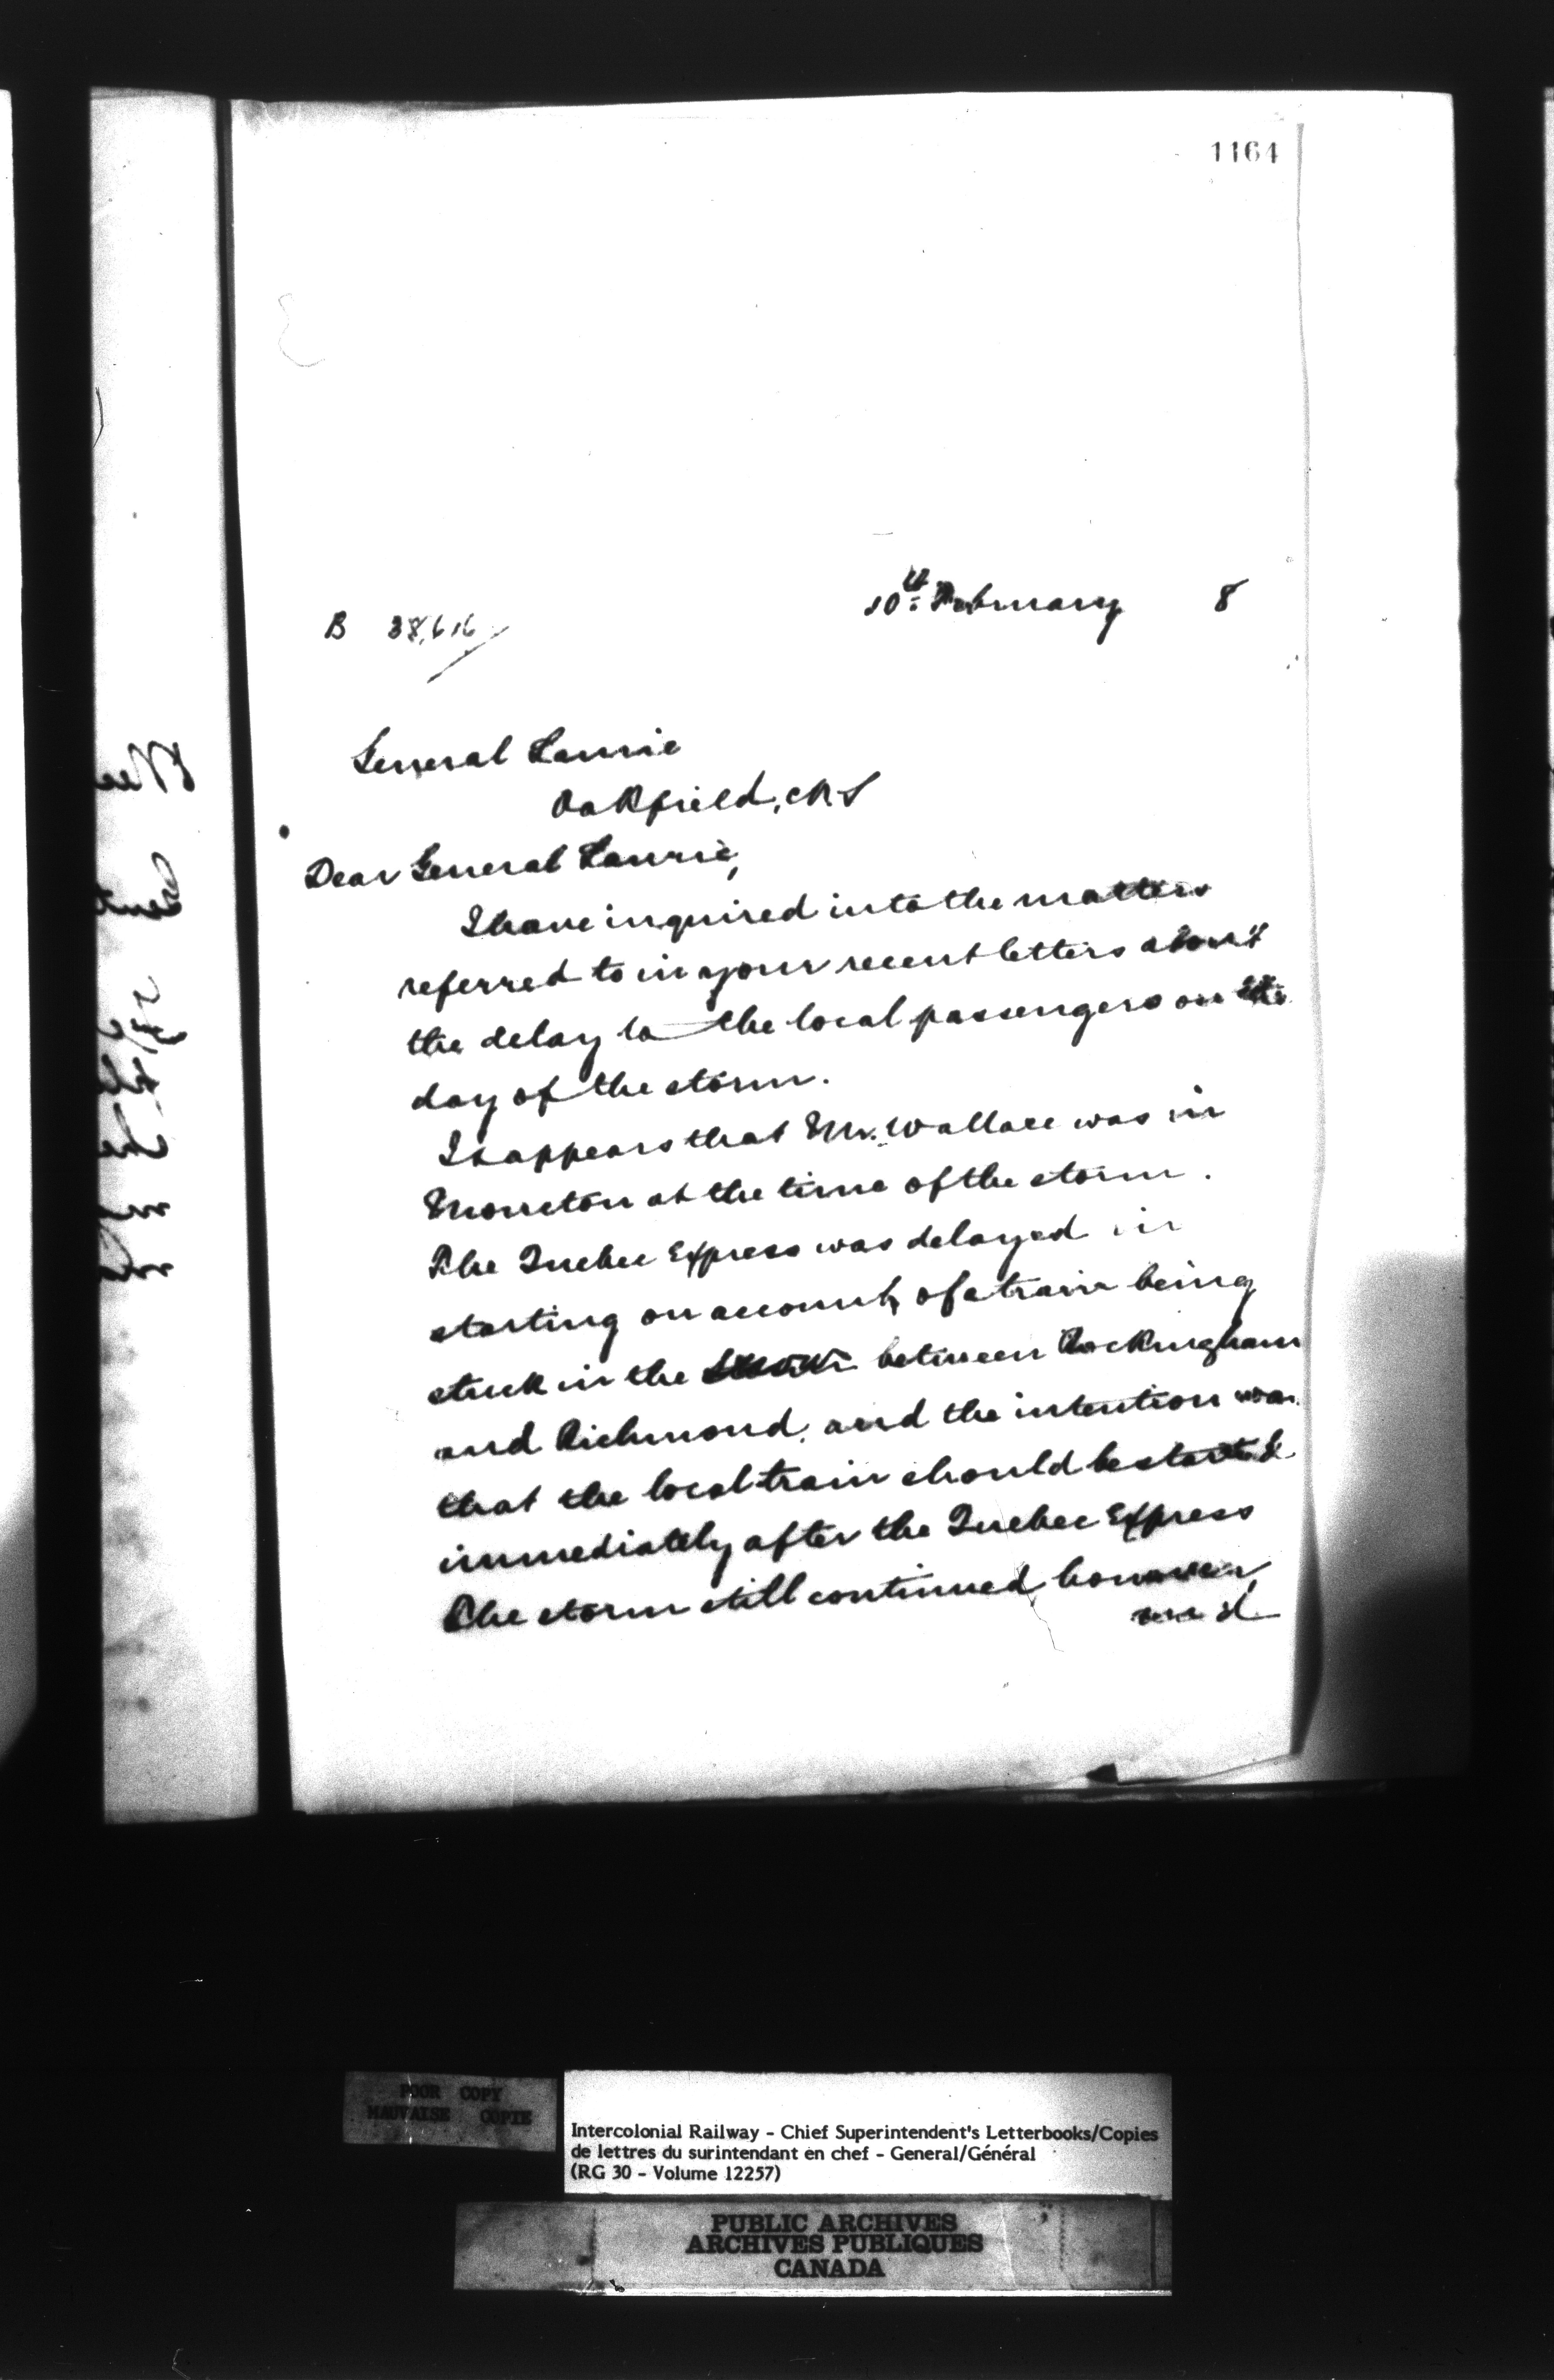 1164
10th February 8
B 38,616
General Laurie
Oakfield, N S
Dear General Laurie,
I have inquired into the matters
referred to in your recent letters about
the delay to the local passengers on the
day of the storm.
It appears that Mr. Wallace was in
Moncton at the time of the storm.
The Quebec Express was delayed in
starting on account of a train being
stuck in the snow between Rockingham
and Richmond, and the intention was
that the local train should be started
immediately after the Quebec Express
The storm still continued however,
and
POOR COPY
MAUVAISE COPIE
Intercolonial Railway - Chief Superintendent's Letterbooks/Copies
de lettres du surintendant en chef - General/Général
(RG 30 - Volume 12257)
PUBLIC ARCHIVES
ARCHIVES PUBLIQUES
CANADA